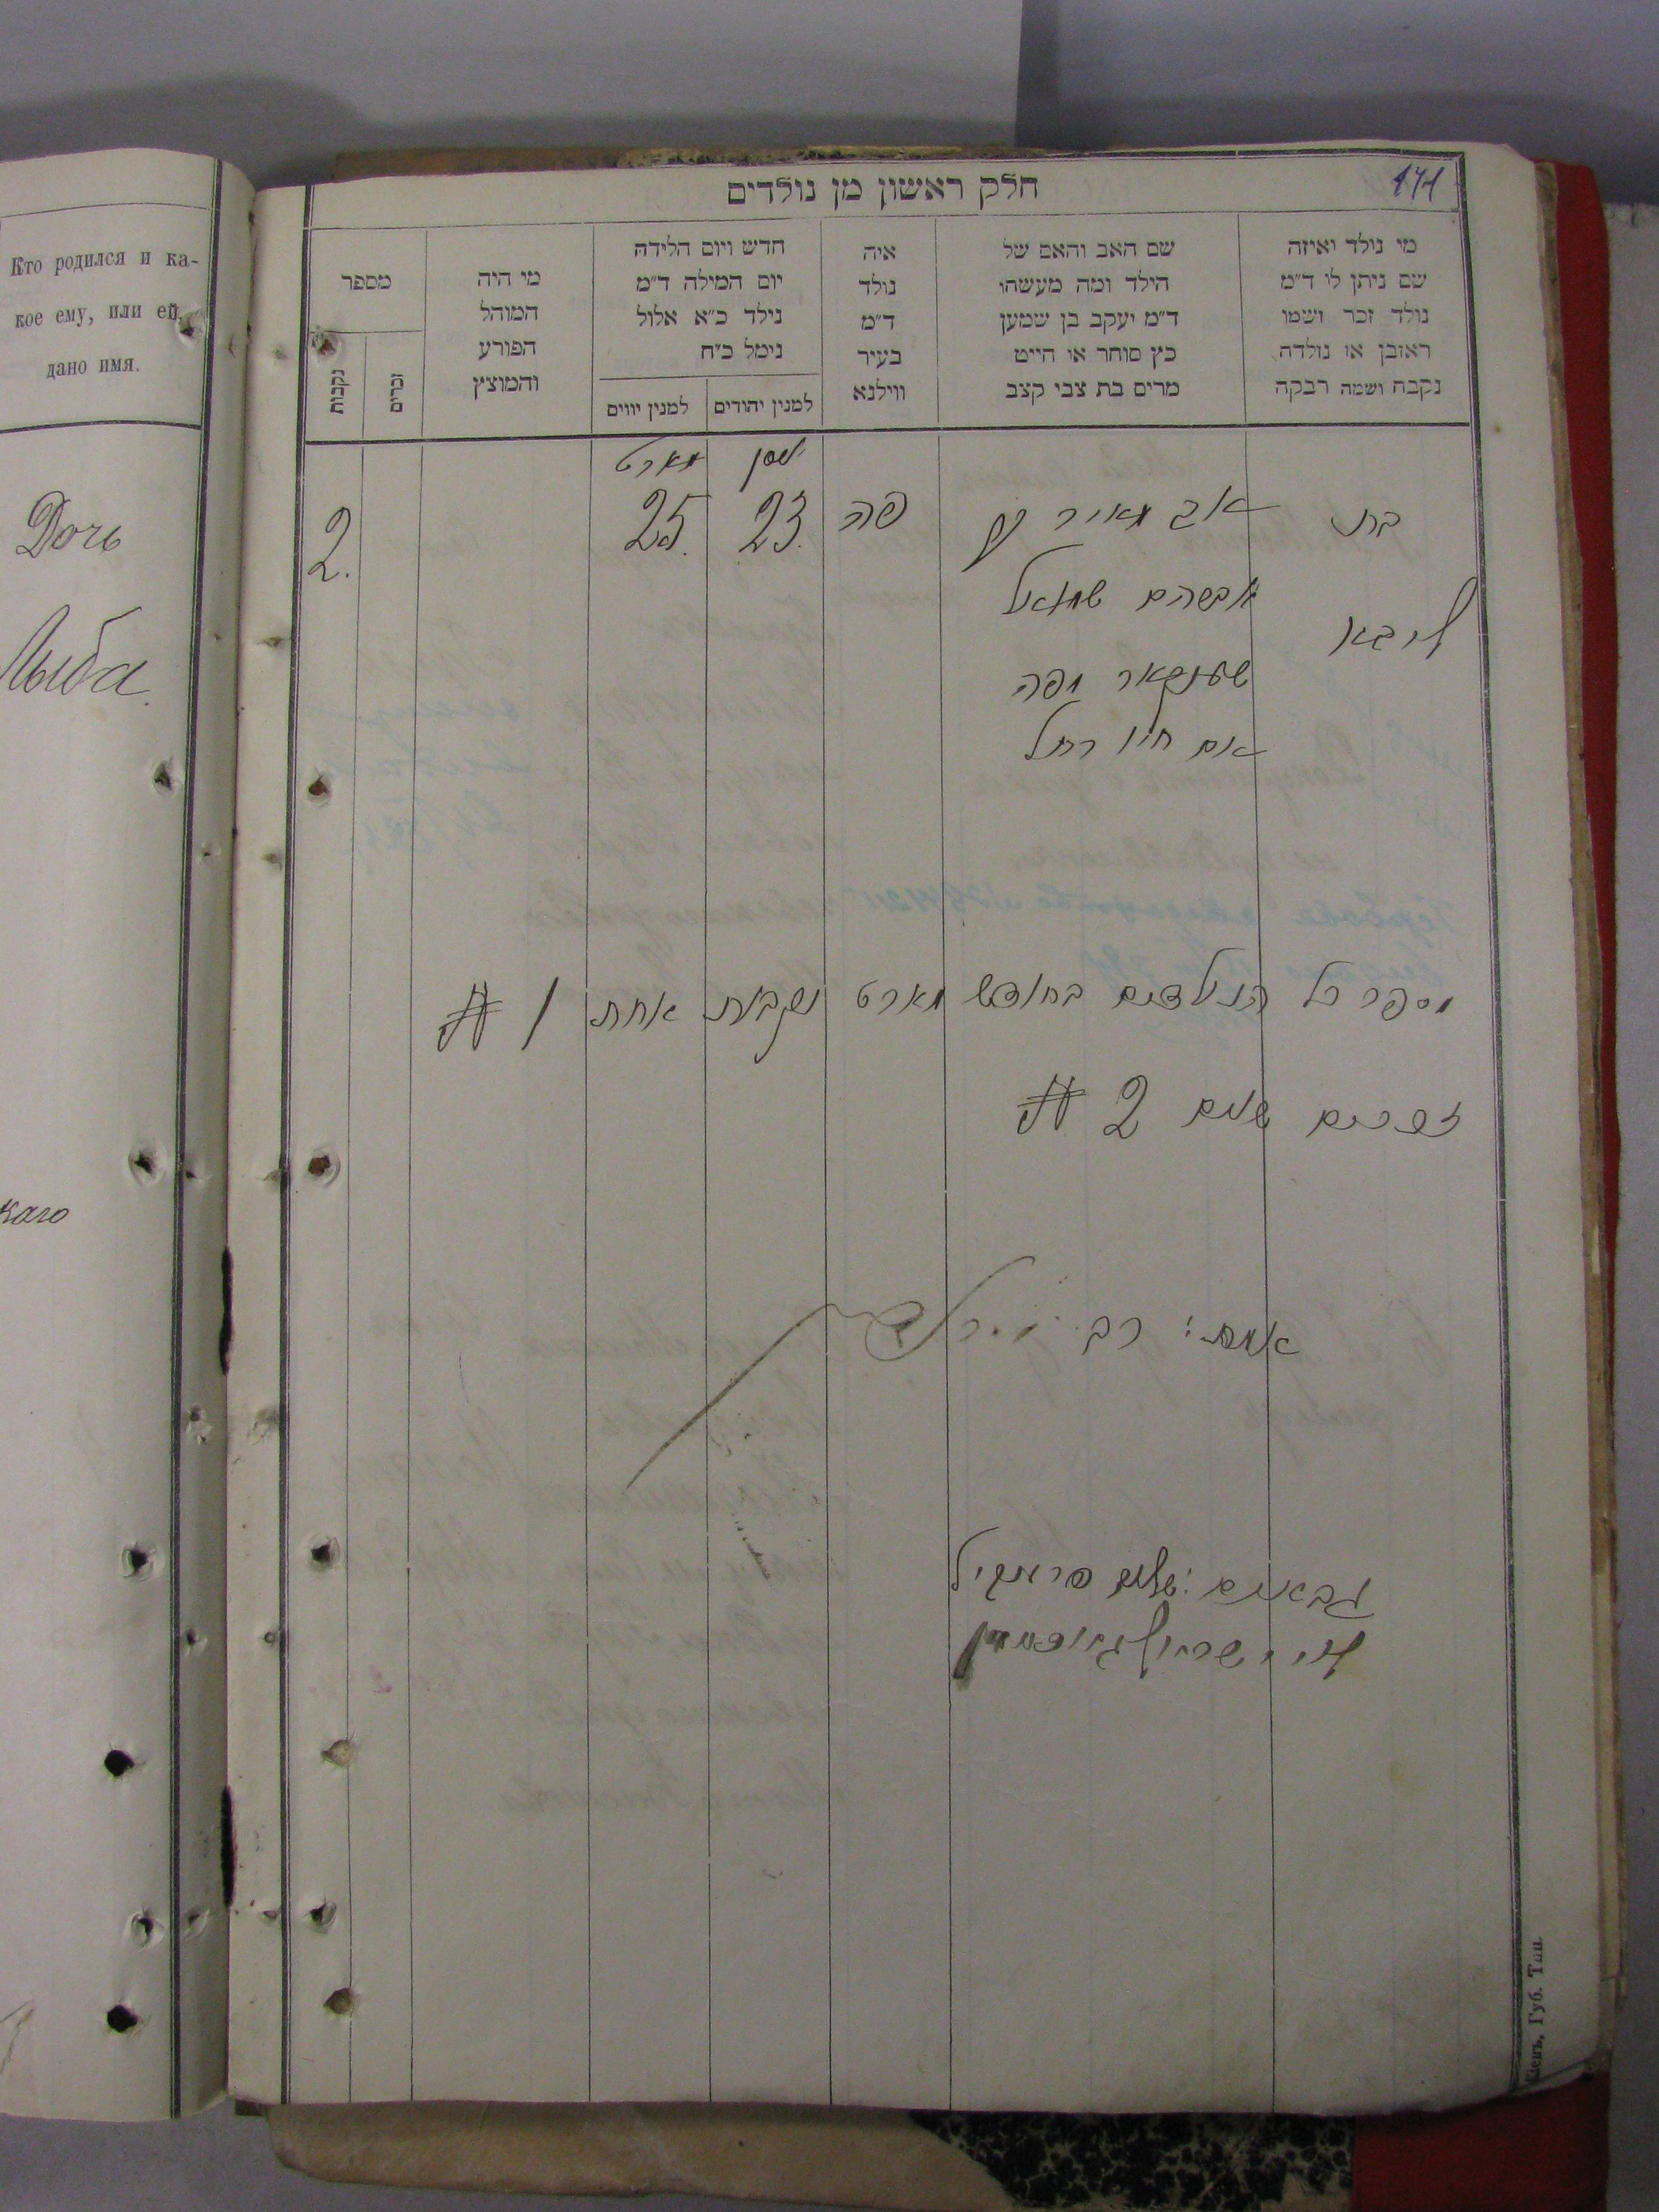 Кто родился и ка-
кое ему, или ей,
дано имя.
Дочь
Лыба
каго
171
חלק ראשון מן נולדים
מי נולד ואיזה
שם ניתן לו ד״מ
נולד זכר ושמו
ראובן או נולדה
נקבה ושמה רבקה
שם האב והאם של
הילד ומה מעשהו
ד״מ יעקב בן שמען
כץ סוחר או חייט
מרים בת צבי קצב
איה
נולד
ד״מ
בעיר
ווילנא
חדש ויום הלידה
יום המילה ד״מ
נילד כ״א אלול
נימל כ״ח
למנין יהודים
למנין יווים
מי היה
המוהל
הפורע
והמוצץ
מספר
זכרים
נקבות
ניסן
מארט
בת
ליבא
אב מאיר בן
אברהם שמואל
מפה
אם חיי רחל
פה
23.
25.
2.
מספר כל הנולדים בחודש מארט נקבות אחת 1 #
זכרים שנים 2 #
אמת: רב
גבאים:
Кіевъ, Губ. Тип.